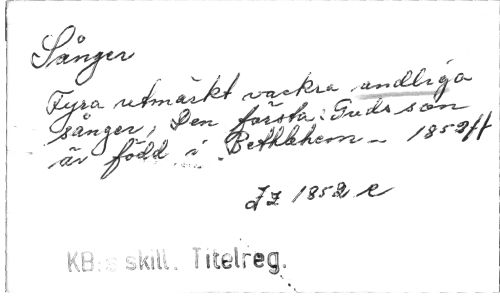 Sånger
Fyra utmärkt vackra andliga
sånger, Den första: Guds son
är född i Bethlehem – 1852 ff
1852 e
KB:s skill. Titelreg.